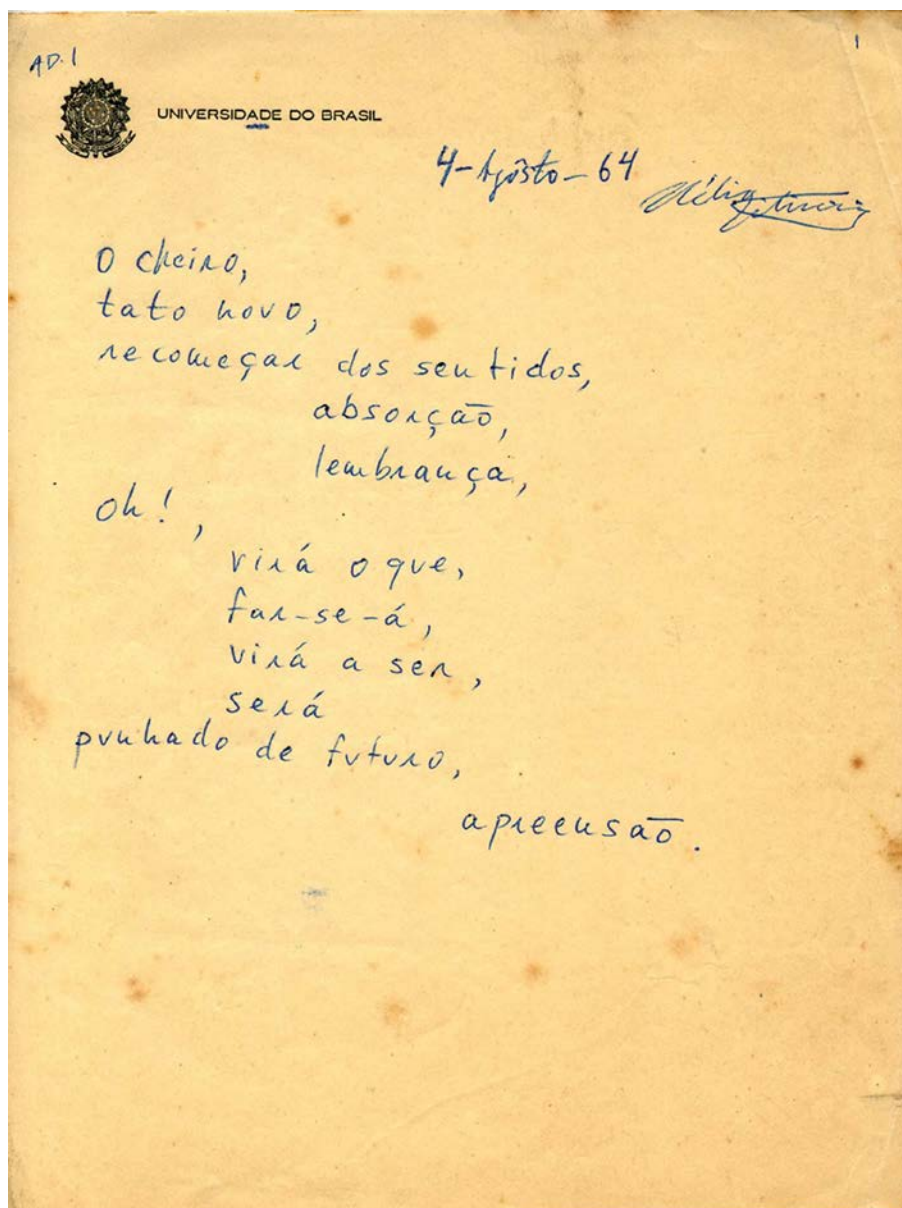 AD.1
1
UNIVERSIDADE DO BRASIL
4-Agôsto-64
Hélio Oiticica
O cheiro,
tato novo,
recomeçar dos sentidos,
absorção,
lembrança,
oh!,
virá o que,
far-se-á,
virá a ser,
será
punhado de futuro,
apreensão.